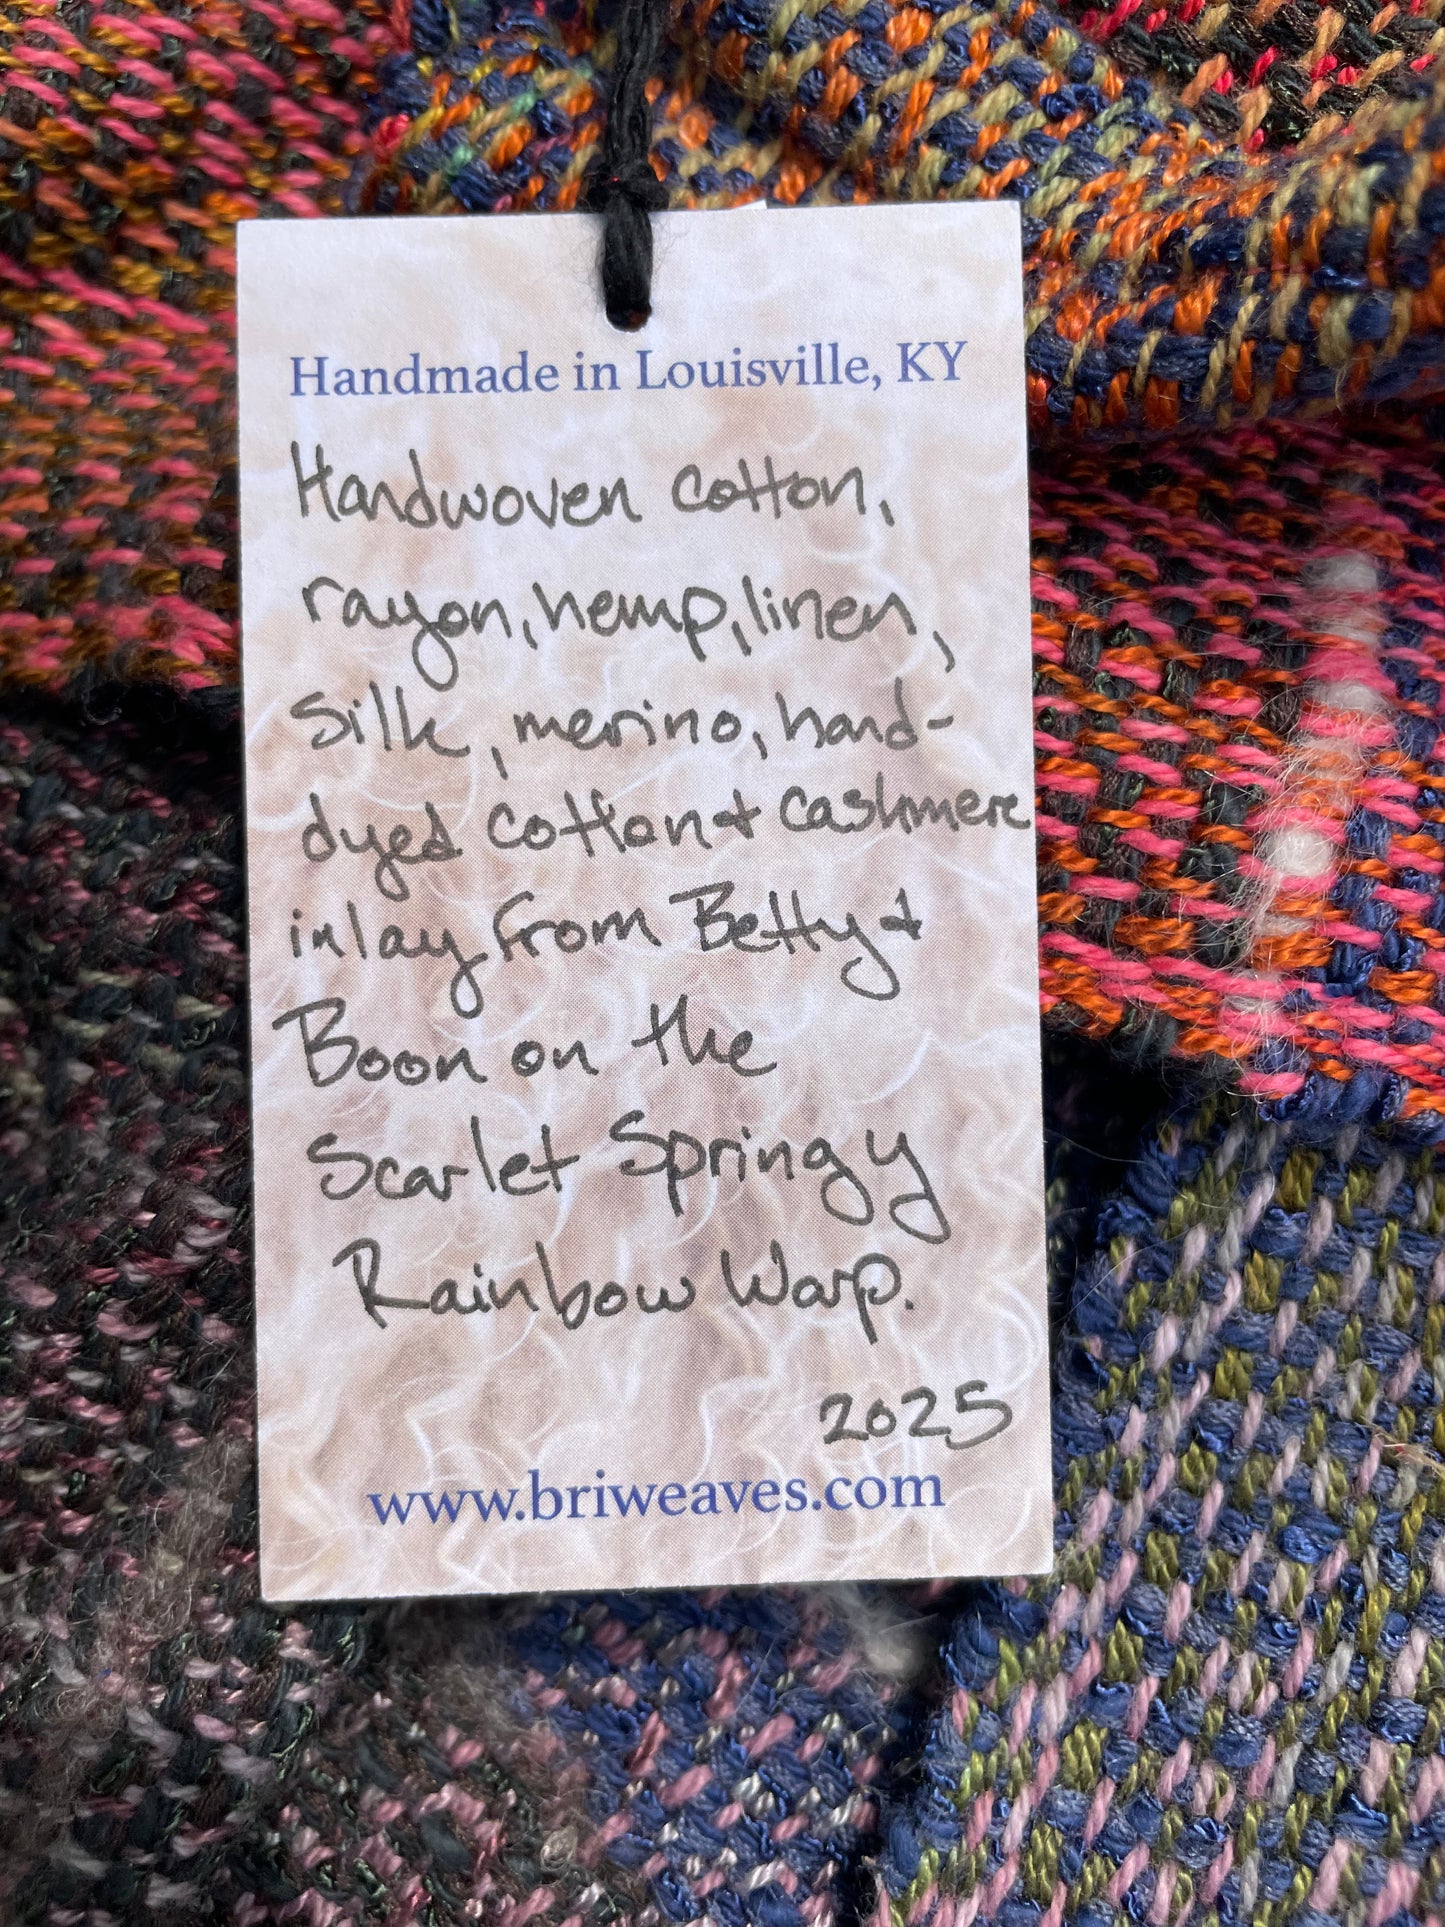 Handmade in Louisville, KY
Handwoven cotton,
rayon, hemp, linen,
silk, merino, hand-
dyed cotton & cashmere
inlay from Betty &
Boon on the
Scarlet Springy
Rainbow Warp.
2025
www.briweaves.com